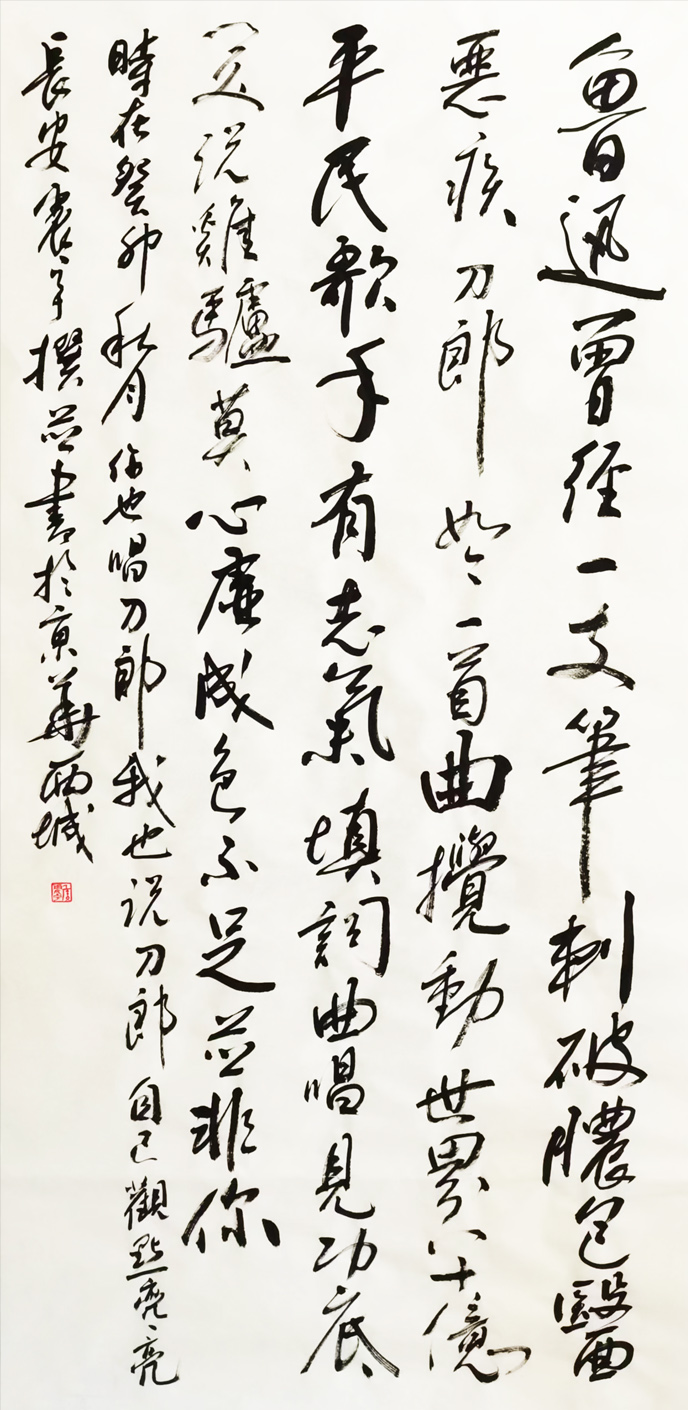 魯迅曾经一支筆刺破膿包醫
惡疾刀郎如今一首曲攪動世界八十億
平民歌手有志氣填詞曲唱見功底
人说雞驢莫心虛成色不足並非你
時在癸卯秋月你也唱刀郎我也说刀郎自己觀點亮亮
長安裴子撰並書於京華西城